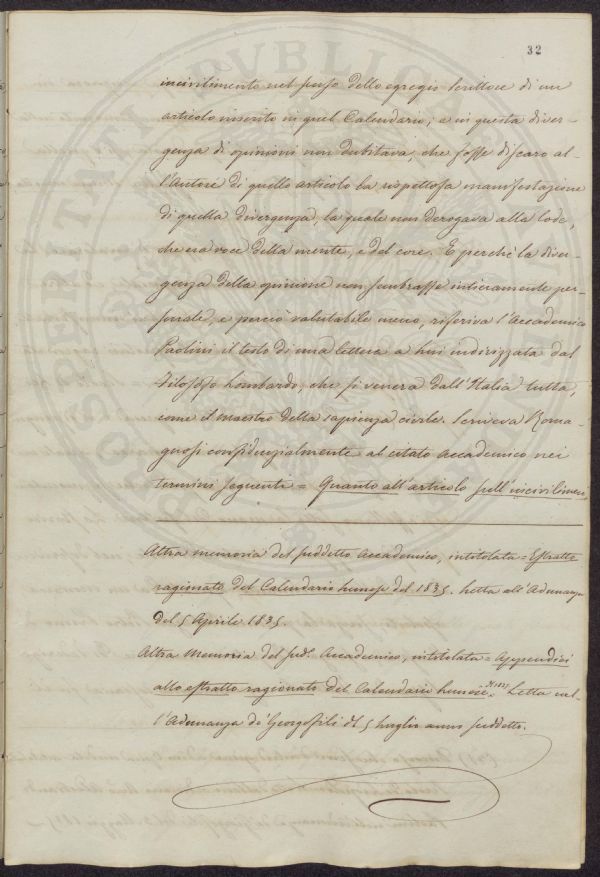 32
incivilimento nel senso dello egregio scrittore di un
articolo inserito in quel Calendario; e in questa diver-
genza di opinioni non dubitava, che fosse discaro al-
l'Autore di quello articolo la rispettosa manifestazione
di quella divergenza, la quale non derogava alla lode,
che era voce della mente, e del core. E perchè la diver-
genza della opinione non sembrasse intieramente per-
sonale, e perciò valutabile meno, riferiva l'Accademico
Paolini il testo di una lettera a lui indirizzata dal
Filosofo Lombardo, che si venera dall'Italia tutta,
come il maestro della sapienza civile. Scriveva Roma-
gnosi confidenzialmente al citato accademico nei
termini seguenti = Quanto all'articolo sull'incivilimen
Altra memoria del suddetto Accademico, intitolata = Estratto
ragionato del Calendario lunese del 1835. Letta all'Adunanza
del 5 Aprile 1835.
Altra Memoria del sud.º Accademico, intitolata = Appendici
allo estratto ragionati del Calendario lunese. Letta nel-
l'Adunanza de' Georgofili del 5 luglio anno suddetto.
PROSPERITATI PUBLICAE